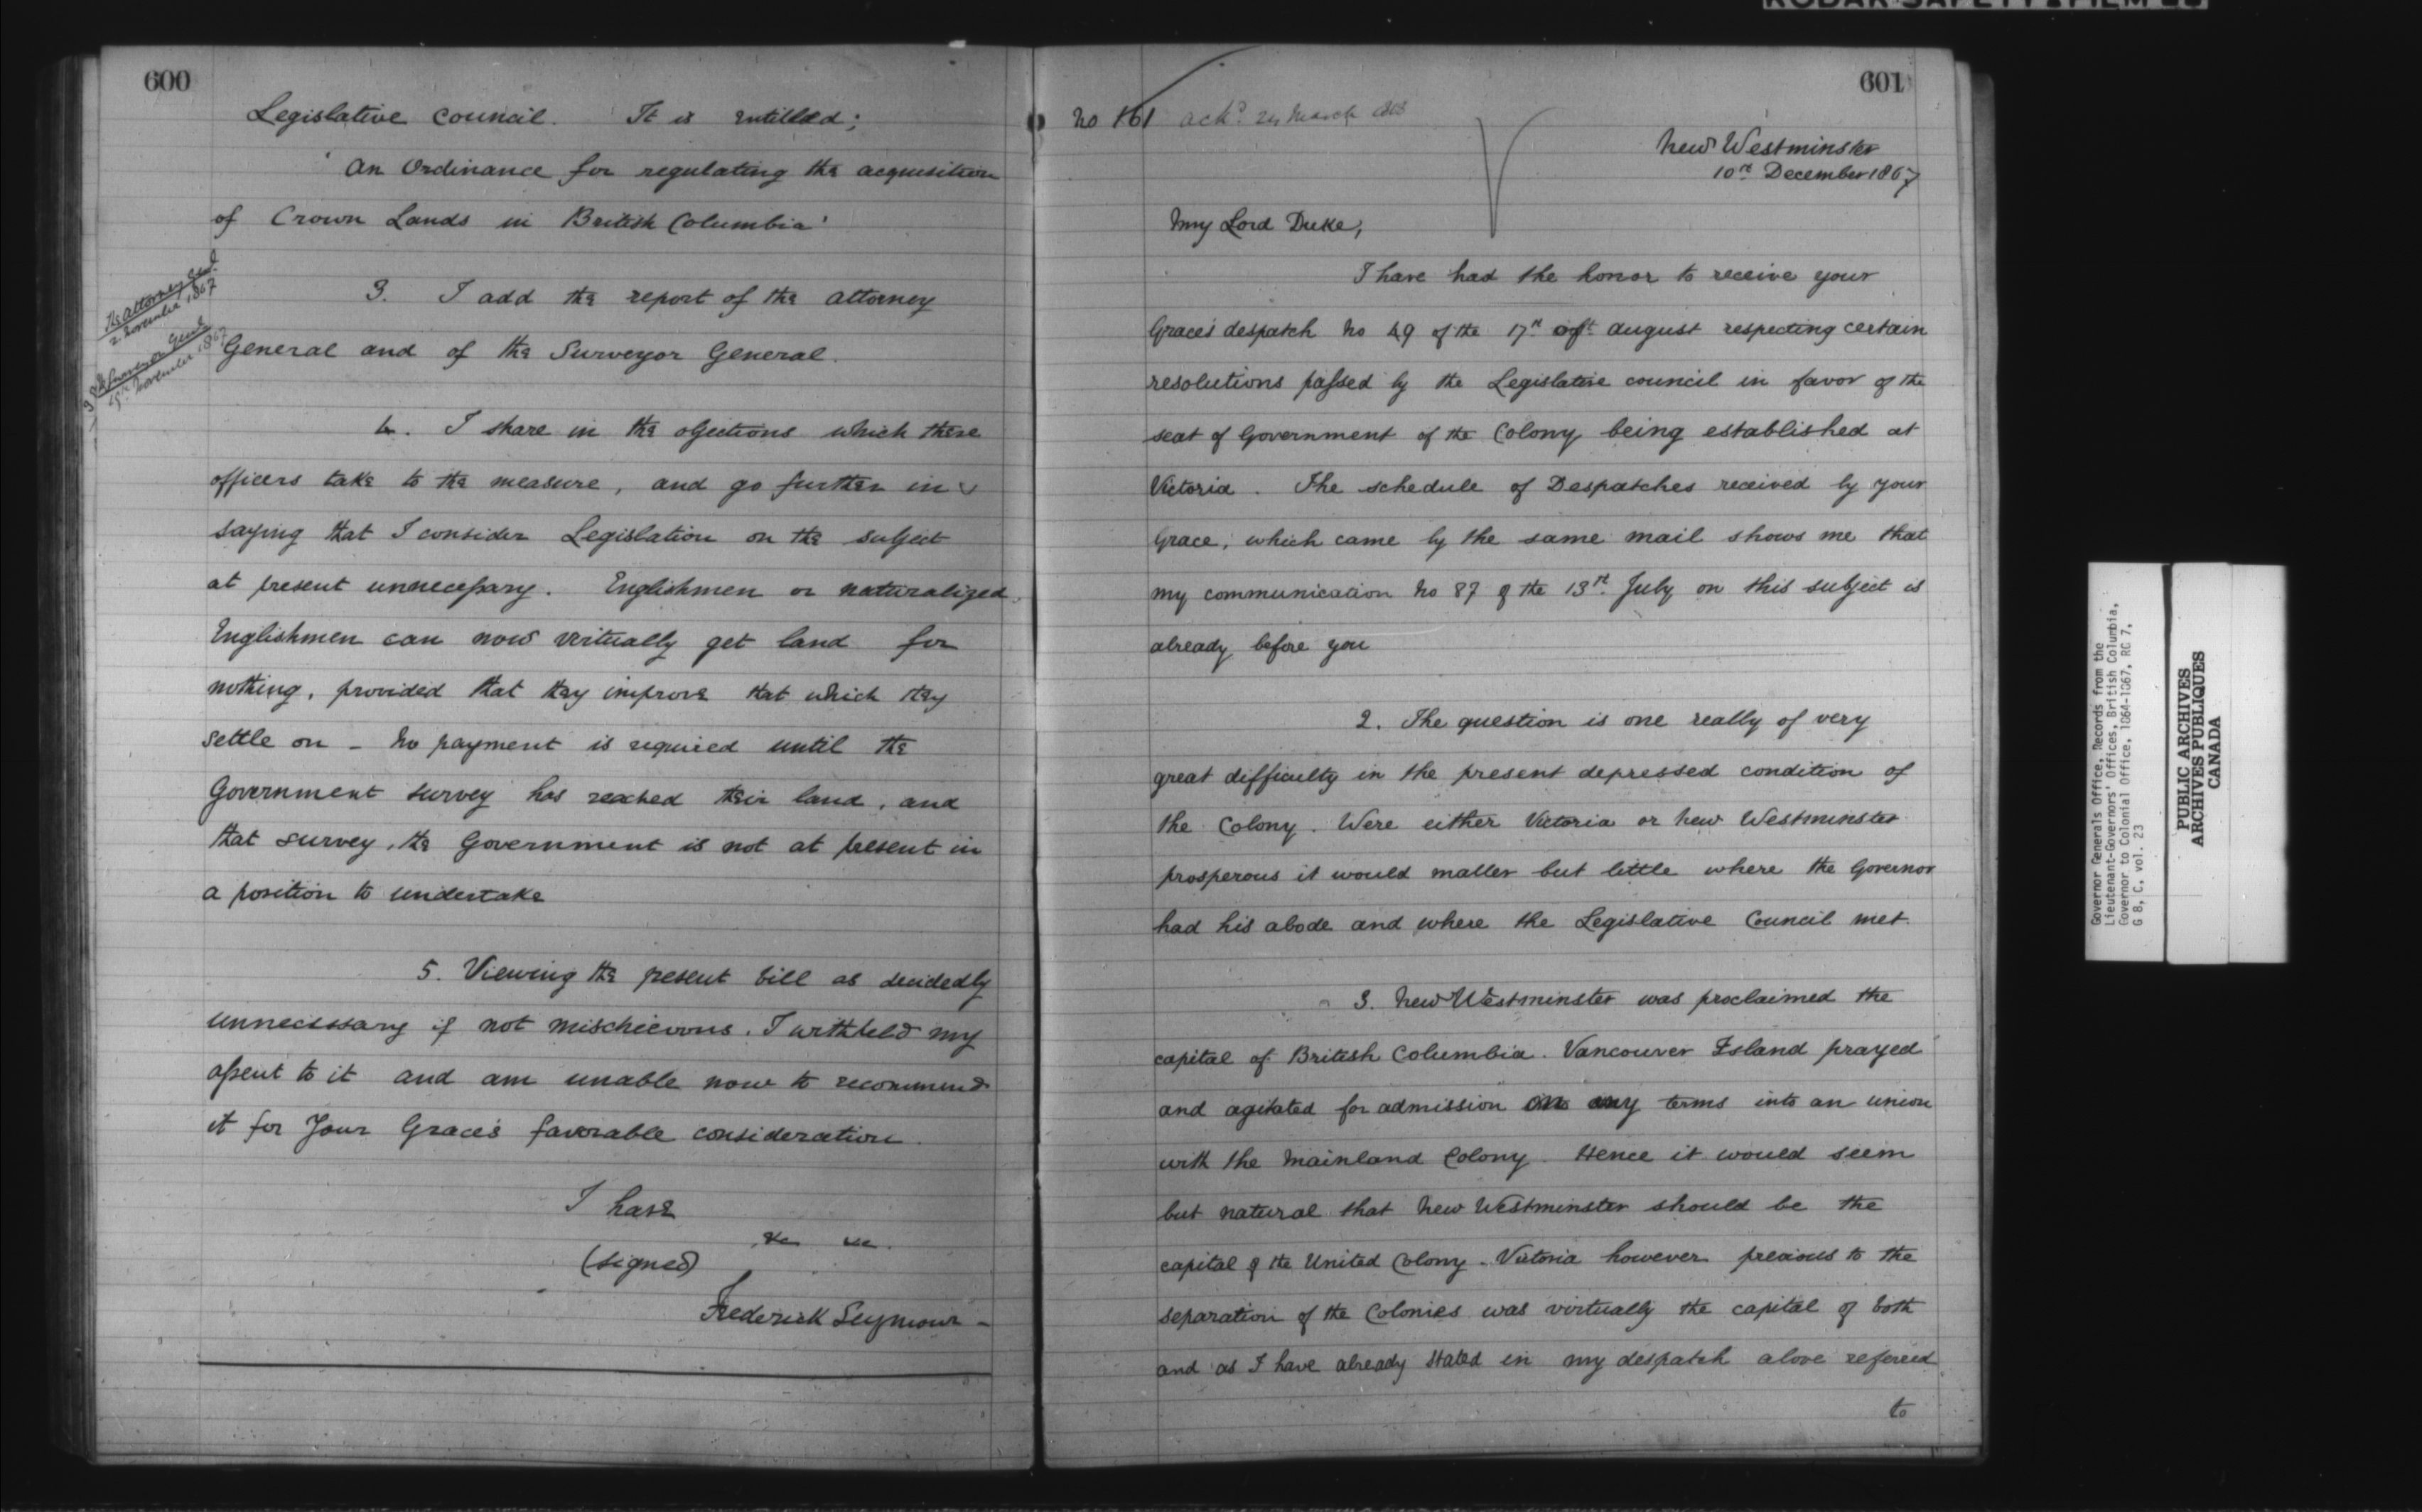 600
Legislative Council. It is entitled;
'An Ordinance for regulating the acquisition
of Crown Lands in British Columbia'
3. I add the report of the Attorney
General and of the Surveyor General.
The Attorney Genl.
2 November 1867
November 1867
4. I share in the objections which these
officers take to the measure, and go further in
saying that I consider Legislation on the subject
at present unnecessary. Englishmen or naturalized
Englishmen can now virtually get land for
nothing, provided that they improve that which they
settle on - No payment is required until the
Government survey has reached their land, and
that survey, the Government is not at present in
a position to undertake
5. Viewing the present bill as decidedly
unnecessary if not mischievous. I withheld my
assent to it and am unable now to recommend
it for Your Grace's favorable consideration.
I have
&c &c.
(signed)
Frederick Seymour -
601
No 161 ackd. 24 March 1868
New Westminster
10th December 1867
My Lord Duke,
I have had the honor to receive your
Grace's despatch No 49 of the 17th of August respecting certain
resolutions passed by the Legislative council in favor of the
seat of Government of the Colony being established at
Victoria. The schedule of Despatches received by your
Grace, which came by the same mail shows me that
my communication No 87 of the 13th July on this subject is
already before you
2. The question is one really of very
great difficulty in the present depressed condition of
the Colony. Were either Victoria or New Westminster
prosperous it would matter but little where the Governor
had his abode and where the Legislative Council met.
3. New Westminster was proclaimed the
capital of British Columbia. Vancouver Island prayed
and agitated for admission on any terms into an union
with the Mainland Colony. Hence it would seem
but natural that New Westminster should be the
capital of the United Colony. Victoria however previous to the
separation of the Colonies was virtually the capital of both
and as I have already stated in my despatch above refered
to
Governor Generals Office, Records from the
Lieutenant-Governors' Offices, British Columbia,
Governor to Colonial Office, 1864-1867, RG 7,
G 8, C, vol. 23
PUBLIC ARCHIVES
ARCHIVES PUBLIQUES
CANADA